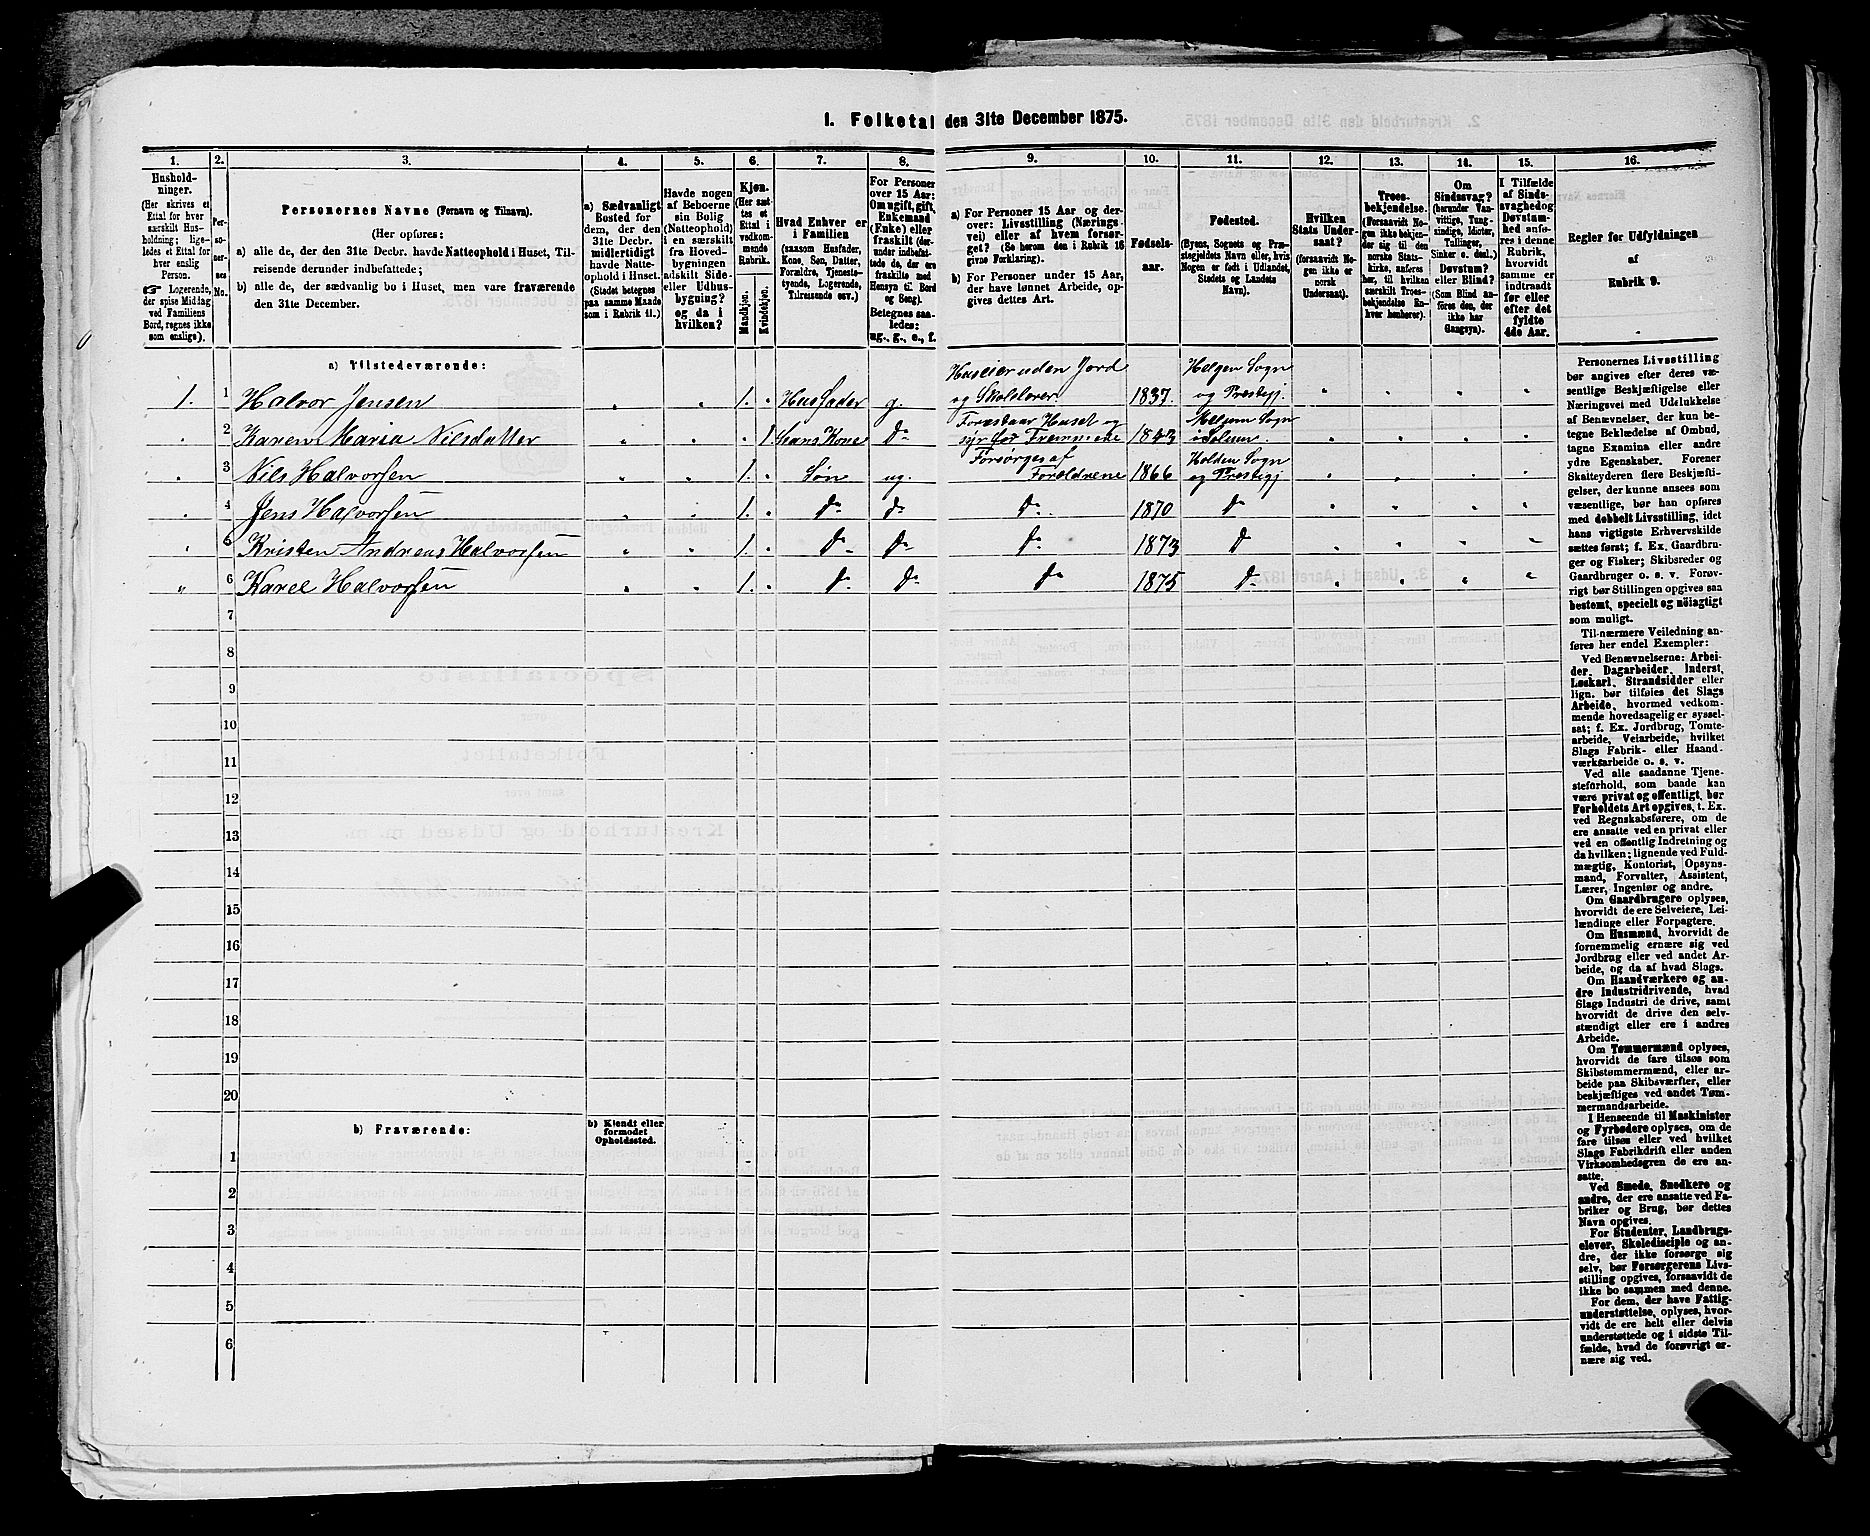 I. Folketal den 31te December 1875.
1. 2. 3. 4. 5. 6. 7. 8. 9. 10. 11. 12. 13. 14. 15. 16.
Hushold-
ninger.
(Her skrives et
Ettal for hver
særskilt Hus-
holdning; lige-
ledes et Ettal for
hver enslig
Person.
☞ Logerende,
der spise Middag
ved Familiens
Bord, regnes ikke
som enslige).
Per-
so-
ner-
nes
No.
Personernes Navne (Fornavn og Tilnavn).
(Her opføres:
a) alle de, der den 31te Decbr. havde Natteophold i Huset, Til-
reisende derunder indbefattede;
b) alle de, der sædvanlig bo i Huset, men vare fraværende
den 31te December.
a) Sædvanligt
Bosted for
dem, der den
31te Decbr.
midlertidigt
havde Natte-
ophold i Huset.
(Stedet betegnes
paa samme Maade
som i Rubrik 11.)
Havde nogen
af Beboerne
sin Bolig
(Natteophold)
i en særskilt
fra Hoved-
bygningen
adskilt Side-
eller Udhus-
bygning?
og da i
hvilken?
Kjøn.
(Her sæt-
tes et
Ettal i
vedkom-
mende
Rubrik.
Mandkjøn.
Kvindekjøn.
Hvad Enhver er
i Familien
(saasom Husfader,
Kone, Søn, Datter,
Forældre, Tjeneste-
tyende, Logerende,
Tilreisende osv.)
For Personer
over 15 Aar:
Om ugift, gift,
Enkemand
(Enke) eller
fraskilt (der-
under indbefat-
tede de, der ere
fraskilte med
Hensyn til Bord
og Seng).
Betegnes saa-
ledes:
ug., g., e., f.
a) For Personer 15 Aar og der-
over: Livsstilling (Nærings-
vei) eller af hvem forsør-
get? (Se herom den i Rubrik 16
givne Forklaring).
b) For Personer under 15 Aar,
der have lønnet Arbeide, op-
gives dettes Art.
Fødsels-
aar.
Fødested.
(Byens, Sognets og Præ-
stegjeldets Navn eller, hvis
Nogen er født i Udlandet,
Stedets og Landets
Navn).
Hvilken
Stats Under-
saat?
(forsaavidt No-
gen ikke er
norsk
Undersaat).
Troes-
bekjendelse.
(Forsaavidt No-
gen ikke bekjen-
der sig til den
norske Stats-
kirke, anføres
her, til hvilken
særskilt Troes-
bekjendelse En-
hver henhører).
Om
Sindssvag?
(herunder Van-
vittige, Tung-
sindige, Idioter,
Tullinger,
Sinker o. desl.)
Døvstum?
eller Blind?
(Som Blind an-
føres den, der
ikke har
Gangsyn).
I Tilfælde
af Sinds-
svaghed og
Døvstum-
hed anfø-
res i denne
Rubrik,
hvorvidt
samme er
indtraadt
før eller
efter det
fyldte
4de Aar.
Regler for Udfyldningen
af
Rubrik 9.
a) Tilstedeværende:
1. 1 Halvor Jensen 1. Husfader g. Huseier uden Jord og Skolelærer 1837. Helgen Sogn og Prestegj
2 Karen Maria Nilsdatter 1. Hans Kone do Forestaar Huset og syr for Fremmede 1843 Melgem Sogn i Solum.
3 Nils Halvorsen 1. Søn ug. Forsørges af Forældrene 1866 Holden Sogn og Prestegj
4 Jens Halvorsen 1. do do do 1870 do
5 Kristen Andreas Halvorsen 1. do do do 1873 do
6 Karel Halvorsen 1. do do do 1875 do
7
8
9
10
11
12
13
14
15
16
17
18
19
20
b) Fraværende:
b) Kjendt eller
formodet
Opholdssted.
1
2
3
4
5
6
Personernes Livsstilling
bør angives efter deres væ-
sentlige Beskjæftigelse eller
Næringsvei med Udelukkelse
af Benævnelser, der kun be-
tegne Beklædelse af Ombud,
tagne Examina eller andre
ydre Egenskaber. Forener
Skatteyderen flere Beskjæfti-
gelser, der kunne ansees som
væsentlige, bør han opføres
med dobbelt Livsstilling, idet
hans vigtigste Erhvervskilde
sættes først; f. Ex. Gaardbru-
ger og Fisker; Skibsreder og
Gaardbruger o. s. v. Forøv-
rigt bør Stillingen opgives saa
bestemt, specielt og nøiagtigt
som muligt.
Til nærmere Veiledning an-
føres her endel Exempler:
Ved Benævnelserne: Arbei-
der, Dagarbeider, Inderst,
Løskarl, Strandsidder eller
lign. bør tilføies det Slags
Arbeide, hvormed vedkom-
mende hovedsagelig er syssel-
sat; f. Ex. Jordbrug, Tomte-
arbeide, Veiarbeide, hvilket
Slags Fabrik- eller Haand-
værksarbeide o. s. v.
Ved alle saadanne Tjene-
steforhold, som baade kan
være privat og offentligt, bør
Forholdets Art opgives, t. Ex.
ved Regnskabsførere, om de
ere ansatte ved en privat eller
ved en offentlig Indretning og
da hvilken; lignende ved Fuld-
mægtig, Kontorist, Opsyns-
mand, Forvalter, Assistent,
Lærer, Ingeniør og andre.
Om Gaardbrugere oplyses,
hvorvidt de ere Selveiere, Lei-
lændinge eller Forpagtere.
Om Husmænd, hvorvidt de
fornemmelig ernære sig ved
Jordbrug eller ved andet Ar-
beide, og da af hvad Slags.
Om Haandværkere og an-
dre Industridrivende, hvad
Slags Industri de drive, samt
hvorvidt de drive den selv-
stændigt eller ere i andres
Arbeide.
Om Tømmermænd oplyses,
hvorvidt de fare tilsøs som
Skibstømmermænd, eller ar-
beide paa Skibsværfter, eller
beskjæftiges ved andet Tøm-
mermandsarbeide.
I Henseende til Maskinister
og Fyrbødere oplyses, om de
fare tilsøs eller ved hvilket
Slags Fabrikdrift eller anden
Virksomhedsgren de ere an-
satte.
Ved Smede, Snedkere og
andre, der ere ansatte ved Fa-
briker og Brug, bør dettes
Navn opgives.
For Studenter, Landbrugs-
elever, Skoledisciple og an-
dre, der ikke forsørge sig
selv, bør Forsørgerens Livs-
stilling opgives, forsaavidt de
ikke bo sammen med denne.
For dem, der have Fattig-
understøttelse, oplyses, hvor-
vidt de ere helt eller delvis
understøttede og i sidste Til-
fælde, hvad de forøvrigt er-
nære sig ved.